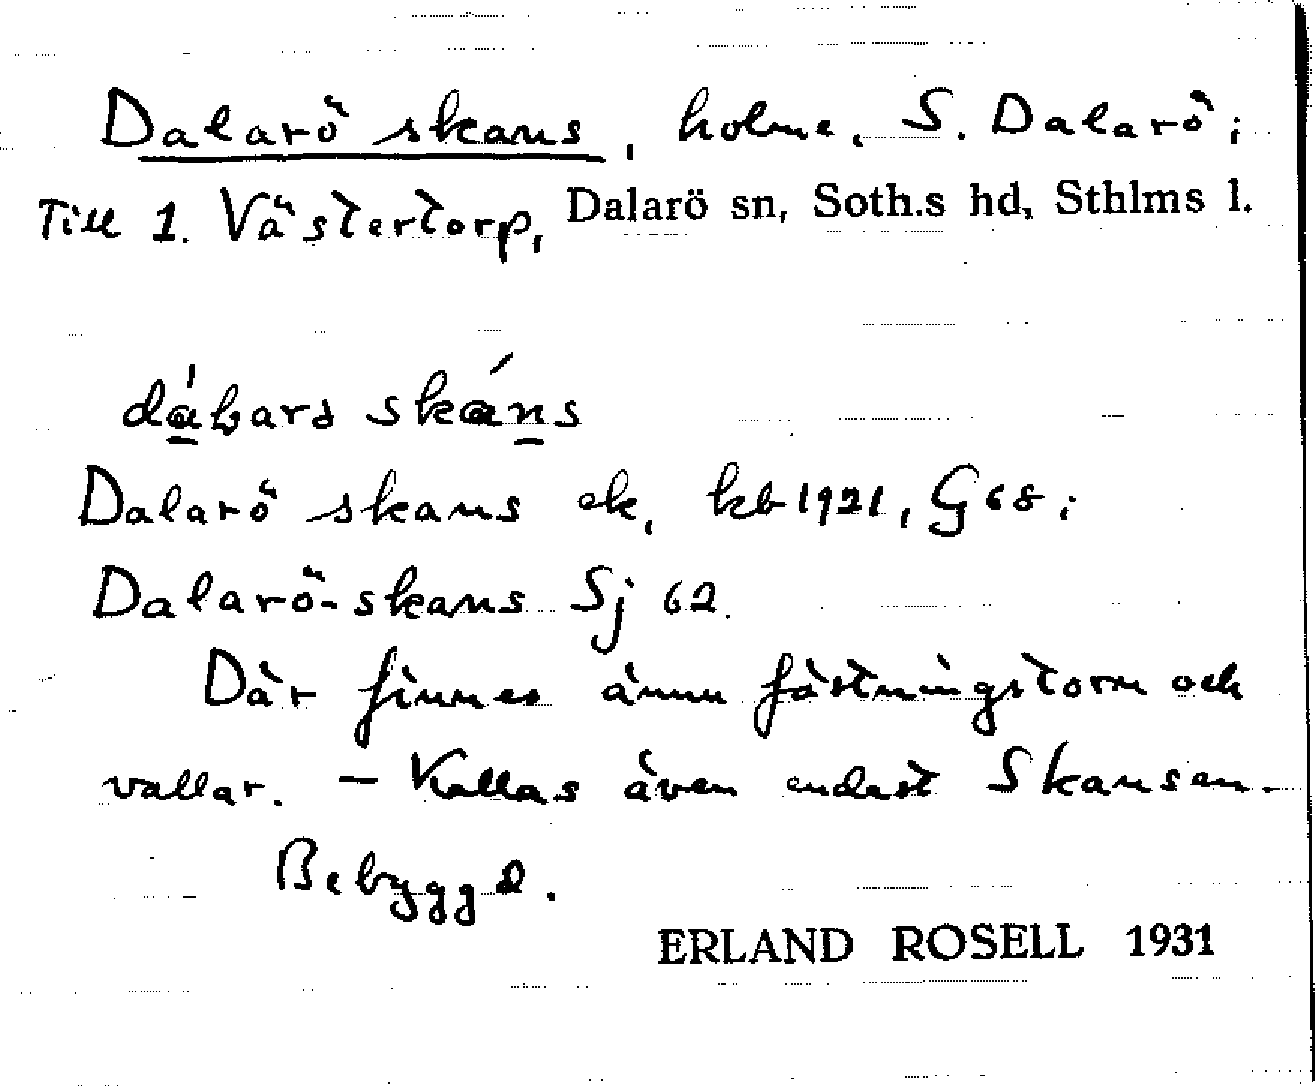 Dalarö skans, holme, S. Dalarö;
Till 1. Västertorp, Dalarö sn, Soth.s hd, Sthlms l.
skáns
Dalarö skans ek, kb 1921, G 68;
Dalarö-skans Sj 62.
Där finnes ännu fästningstorn och
vallar. — Kallas även endast Skansen.
Bebyggd.
ERLAND ROSELL 1931